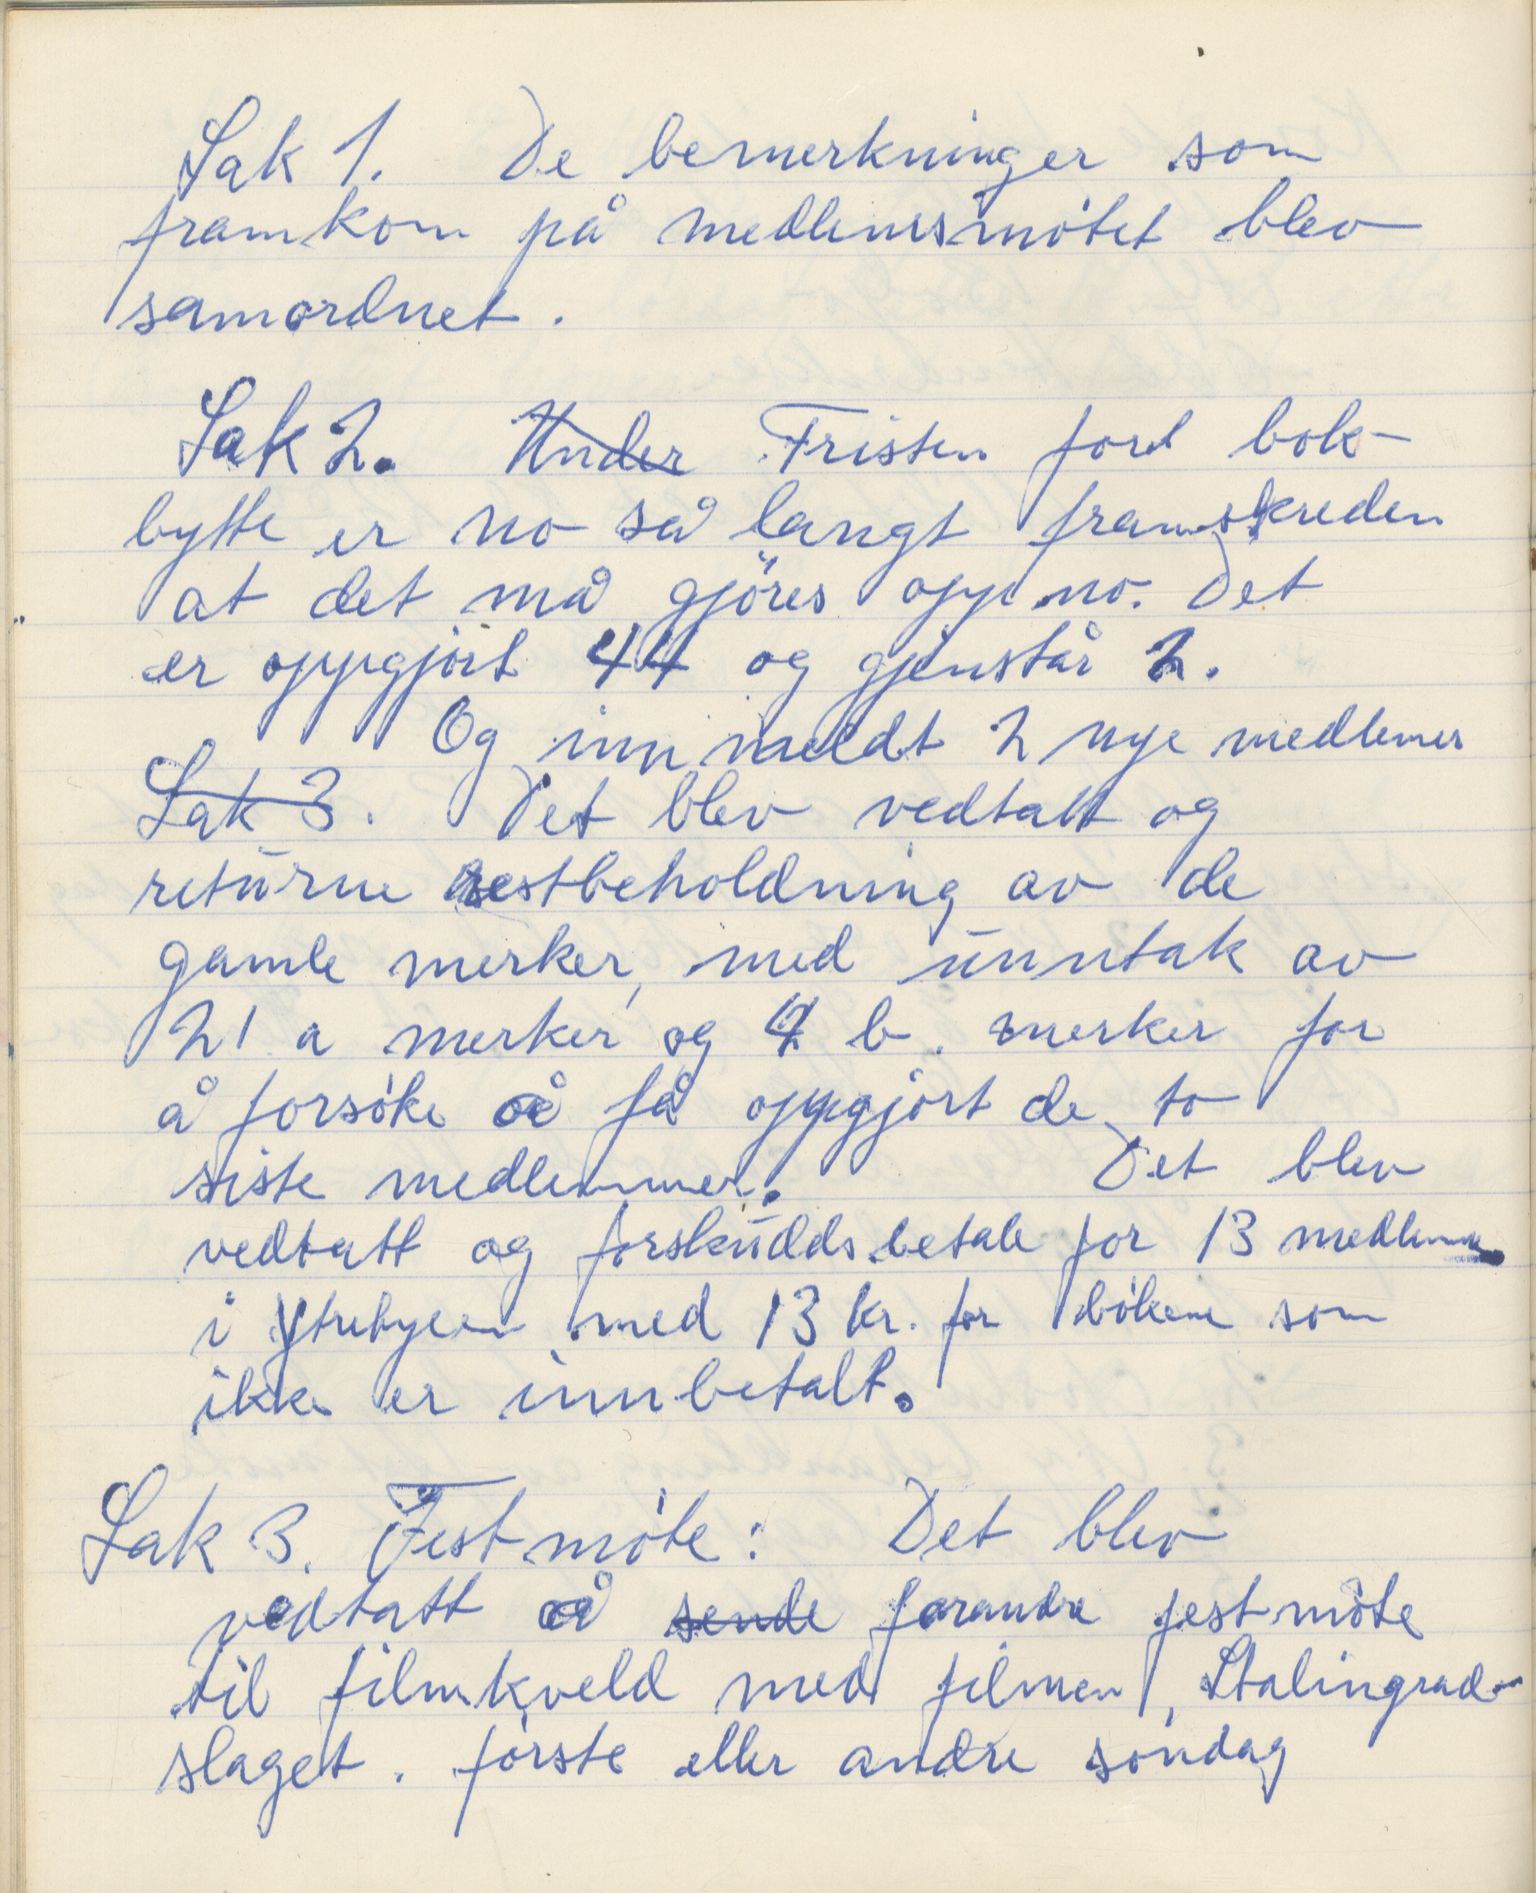 Sak 1. De bemerkninger som
framkom på medlemsmötet blev
samordnet.
Sak 2. Under Fristen ford bok-
bytte er no så langt framskreden
at det må gjöres opp no. Det
er oppgjört 44 og gjenstår 2.
Og innmeldt 2 nye medlemer
Sak 3. Det blev vedtatt og
returne restbeholdning av de
gamle merker, med unntak av
21 a merker og 4 b. merker for
å forsöke å få oppgjört de to
siste medlemmer. Det blev
vedtatt og forskuddsbetale for 13 medlemer
i Ytrebyen med 13 kr. for bökene som
ikke er innbetalt.
Sak 3. Festmöte: Det blev
vedtatt å sende forandre festmöte
til filmkveld med filmen, Stalingrad-
slaget. förste eller andre söndag